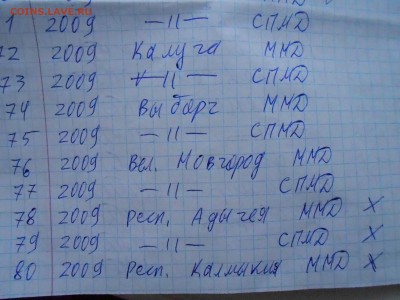 COINS.LAVE.RU
1 2009 —//— СПМД
72 2009 Калуга ММД
73 2009 —//— СПМД
74 2009 Выборг ММД
75 2009 —//— СПМД
76 2009 Вел. Новгород ММД
77 2009 —//— СПМД
78 2009 респ. Адыгея ММД X
79 2009 —//— СПМД X
80 2009 Респ. Калмыкия ММД X